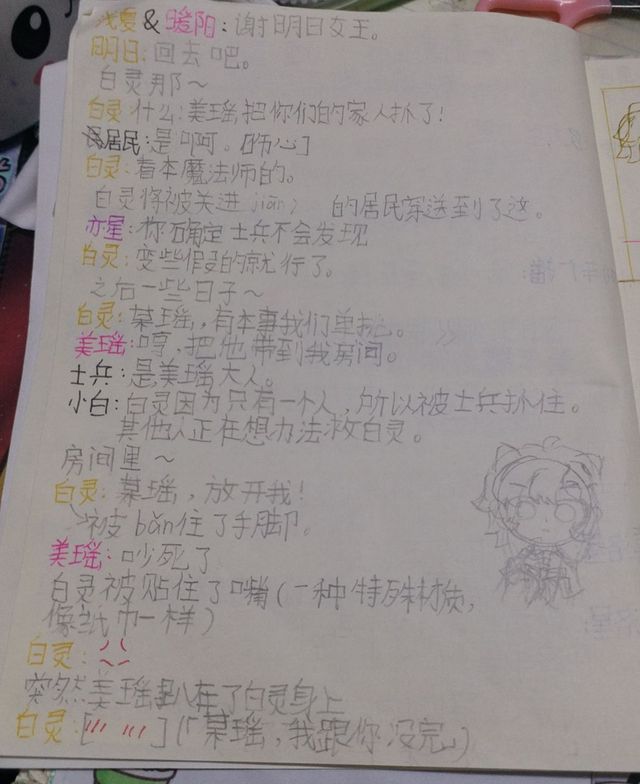 浅夏&暖阳:谢明日女王。
明日:回去吧。
白灵那~
白灵:什么!美瑶把你们的家人抓了!
居民:是啊。[伤心]
白灵:看本魔法师的。
白灵将被关进(jiān) 的居民家送到了这。
亦星:你确定士兵不会发现
白灵:变些假的就行了。
之后一些日子~
白灵:某瑶,有本事我们单挑。
美瑶:哼,把他带到我房间。
士兵:是美瑶大人。
小白:白灵因为只有一个人,所以被士兵抓住。
其他人正在想办法救白灵。
房间里~
白灵:某瑶,放开我!
被bǎn住了手脚。
美瑶:吵死了
白灵被贴住了嘴(一种特殊材质,
像纸巾一样)
白灵:
突然美瑶趴在了白灵身上
白灵:[〃 〃](「某瑶,我跟你没完」)